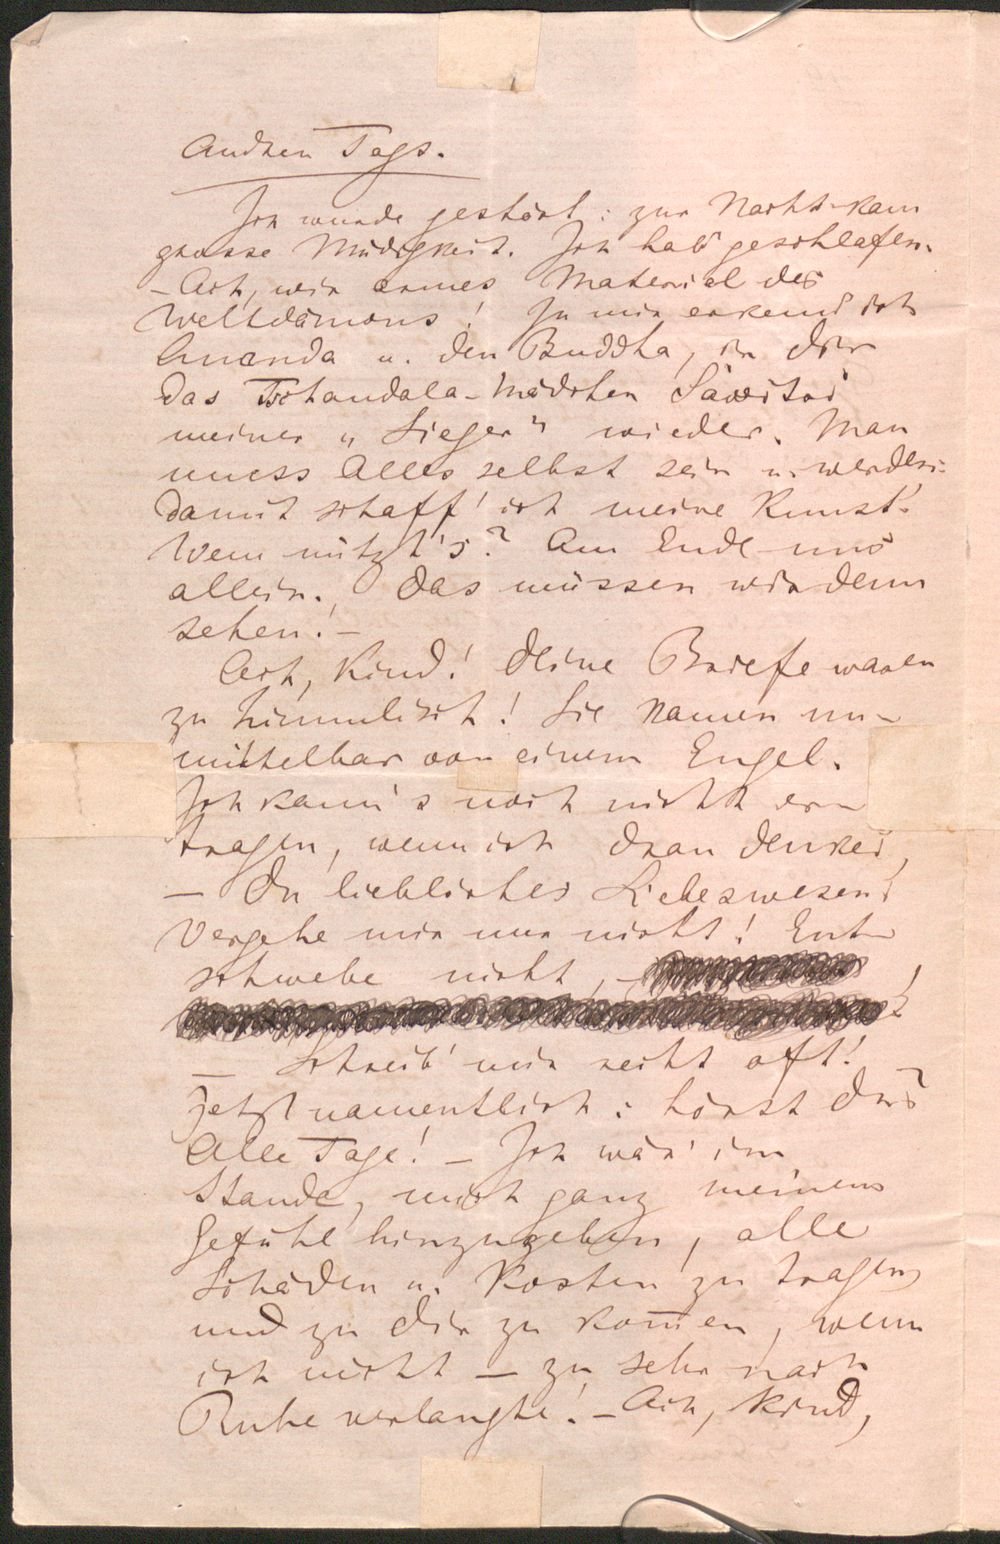 Andren Tags.
Ich wurde gestört: zur Nacht kam
grosse Müdigkeit. Ich hab' geschlafen.
– Ach, wir armes Material des
Weltdämons! In mir erkenn' ich
Ananda u. den Buddha, in dir
das Tschandala-Mädchen Sawitri
meiner „Sieger" wieder. Man
muss Alles selbst sein u. werden:
damit schaff' ich meine Kunst.
Wem nützt's? Am Ende uns
allein. Das müssen wir denn
sehen! –
Ach, Kind! Deine Briefe waren
zu himmlisch! Sie kamen un-
mittelbar von einem Engel.
Ich kann's noch nicht er-
tragen, wenn ich dran denke,
– Du liebliches Liebeswesen!
Vergehe mir nur nicht! Ent-
schwebe nicht, –
!
– Schreib' mir recht oft!
Jetzt namentlich: hörst du?
Alle Tage! – Ich wär' im
Stande, mich ganz meinem
Gefühl hinzugeben, alle
Schäden u. Kosten zu tragen
und zu dir zu kom̄en, wenn
ich nicht – zu sehr nach
Ruhe verlangte! – Ach, Kind,